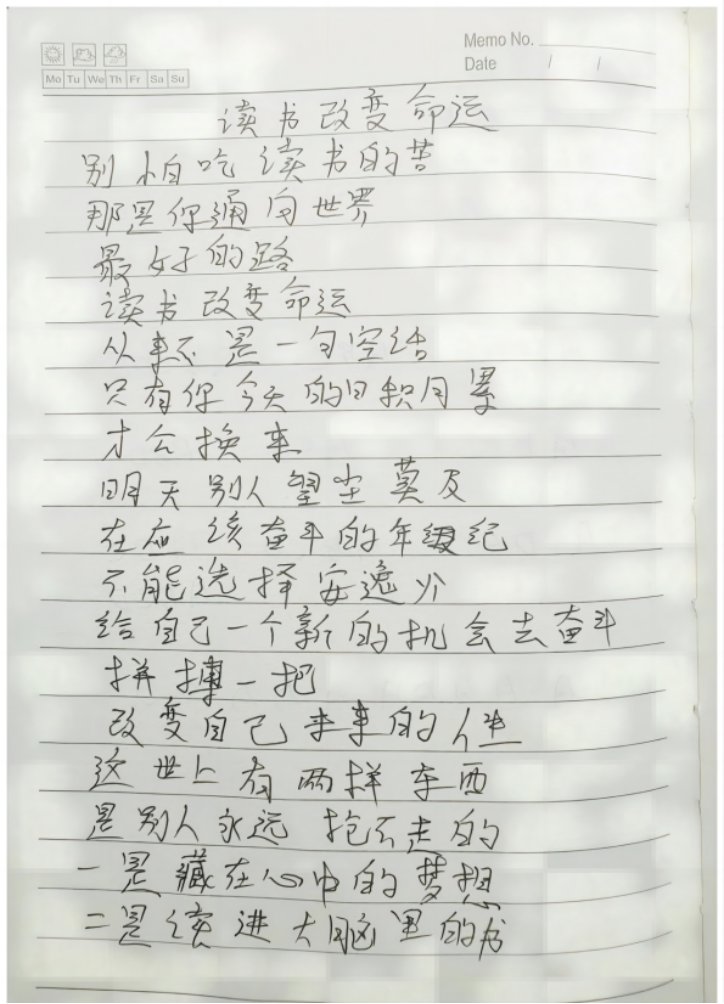 Memo No.
Date / /
Mo Tu We Th Fr Sa Su
读书改变命运
别怕吃读书的苦
那是你通向世界
最好的路
读书改变命运
从来不是一句空话
只有你今天的日积月累
才会换来
明天别人望尘莫及
在应该奋斗的年纪
不能选择安逸
给自己一个新的机会去奋斗
拼搏一把
改变自己未来的人生
这世上有两样东西
是别人永远抢不走的
一是藏在心中的梦想
二是读进大脑里的书